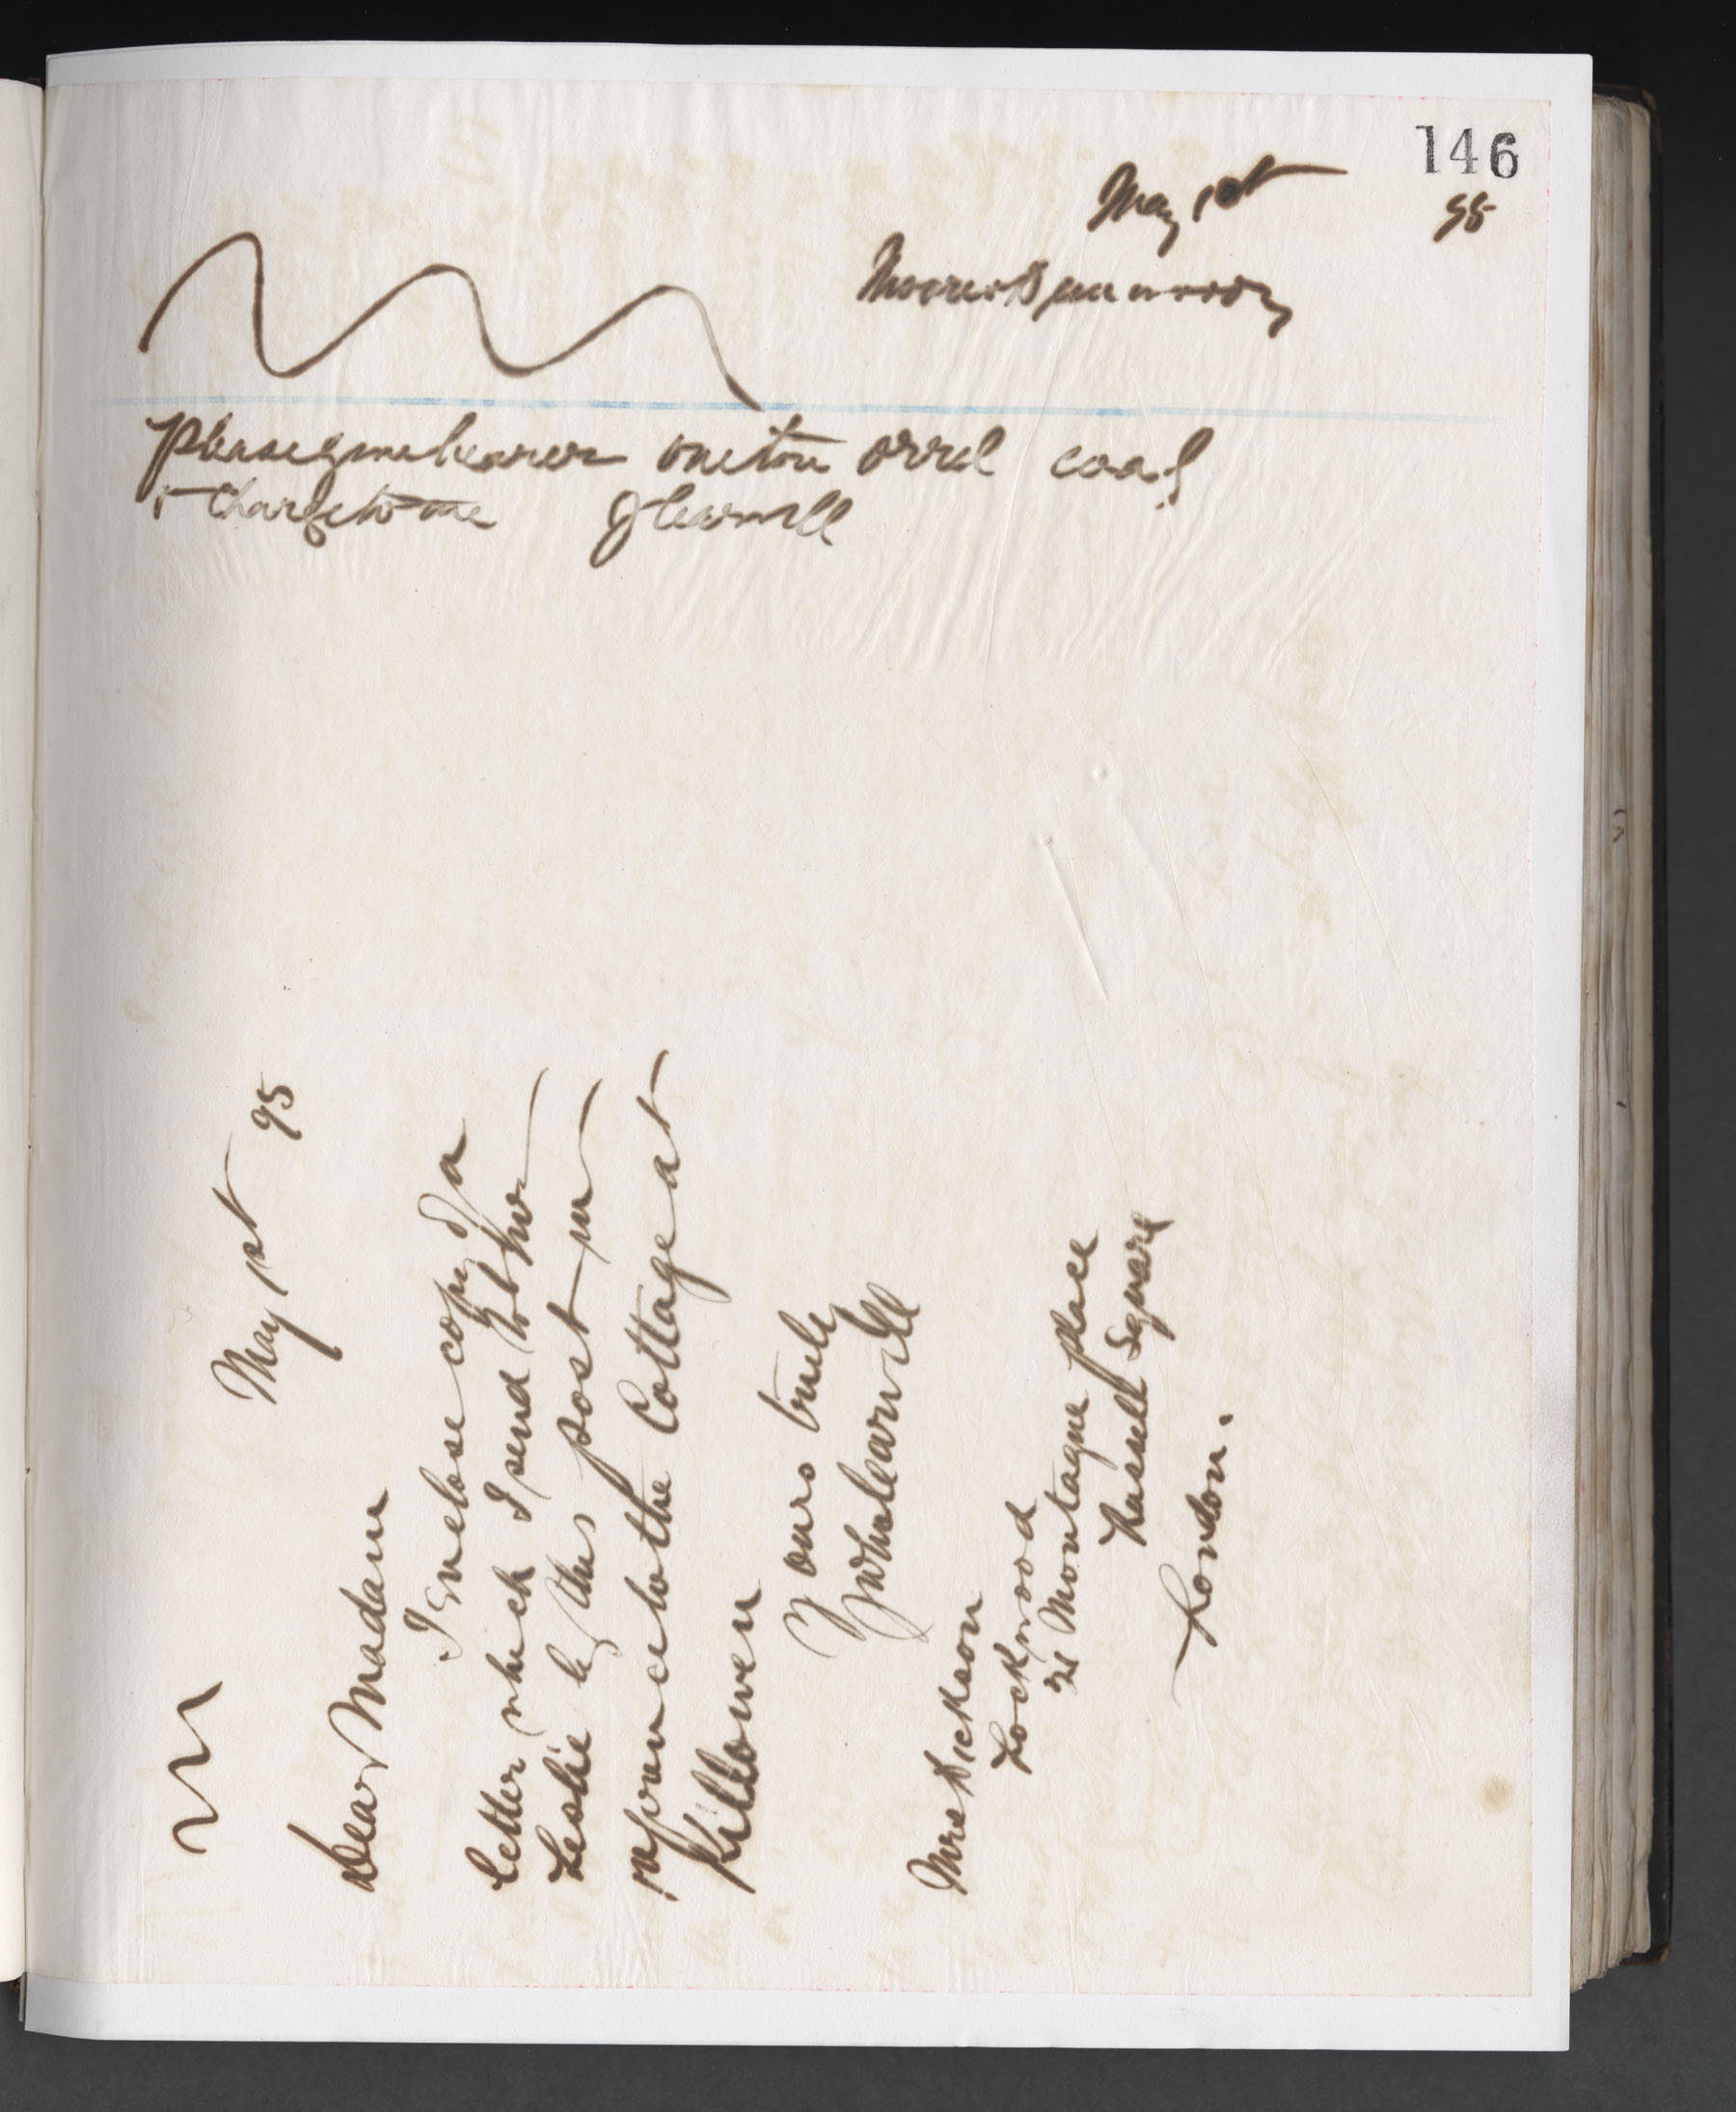 146
May 1st 95
Moore & Dunwoody
Please give bearer one ton orrel coal
& charge to me J Wharnill
May 1st 95
Dear Madam
I Enclose copy of a
letter which I send to Mr
Leslie by this post in
reference to the Cottage at
Killowen
Yours truly
Mrs Dickson
Lockwood
21 Montague place
Russell Square
London.